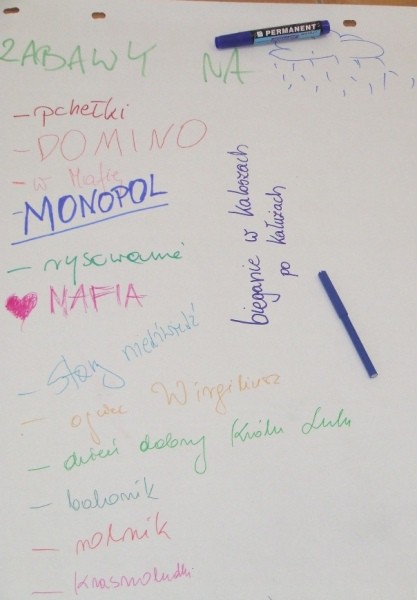 ZABAWY NA
B PERMANENT
– pchełki
– DOMINO
– w Mafię
– MONOPOL
– rysowanie
MAFIA
bieganie w kaloszach
po kałużach
– Stary niedźwiedź
– ojciec Wirgiliusz
– dzień dobry Królu Lulu
– balonik
– rolnik
– Krasnoludki